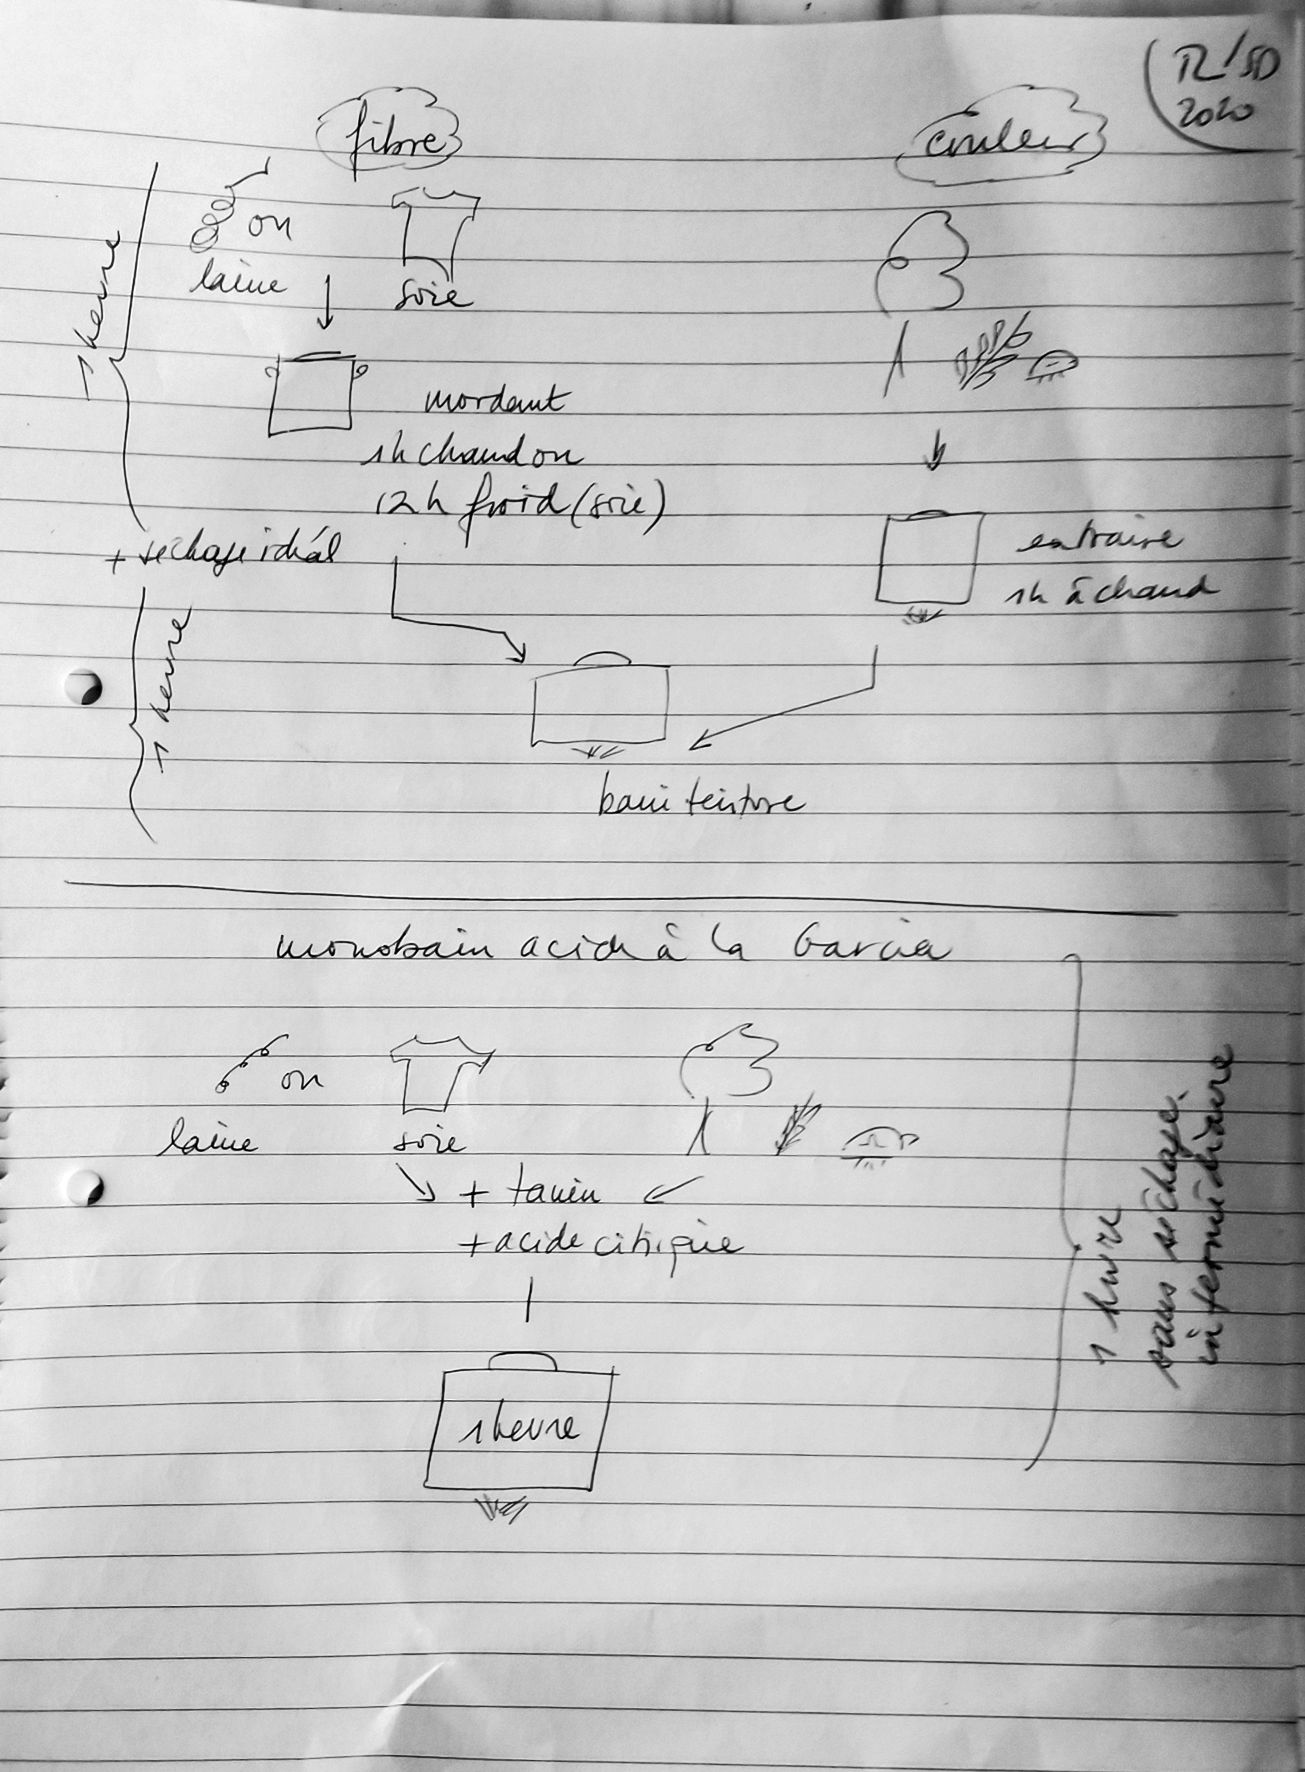 fibre
couleur
2020
ou
laine
soie
1 heure
mordant
1h chaud ou
12h froid (soie)
+ séchage idéal
extraire
1h à chaud
1 heure
bain teinture
monobain acide à la Garcia
ou
laine
soie
+ tanin
+ acide citrique
1 heure
1 heure
sans séchage
intermédiaire